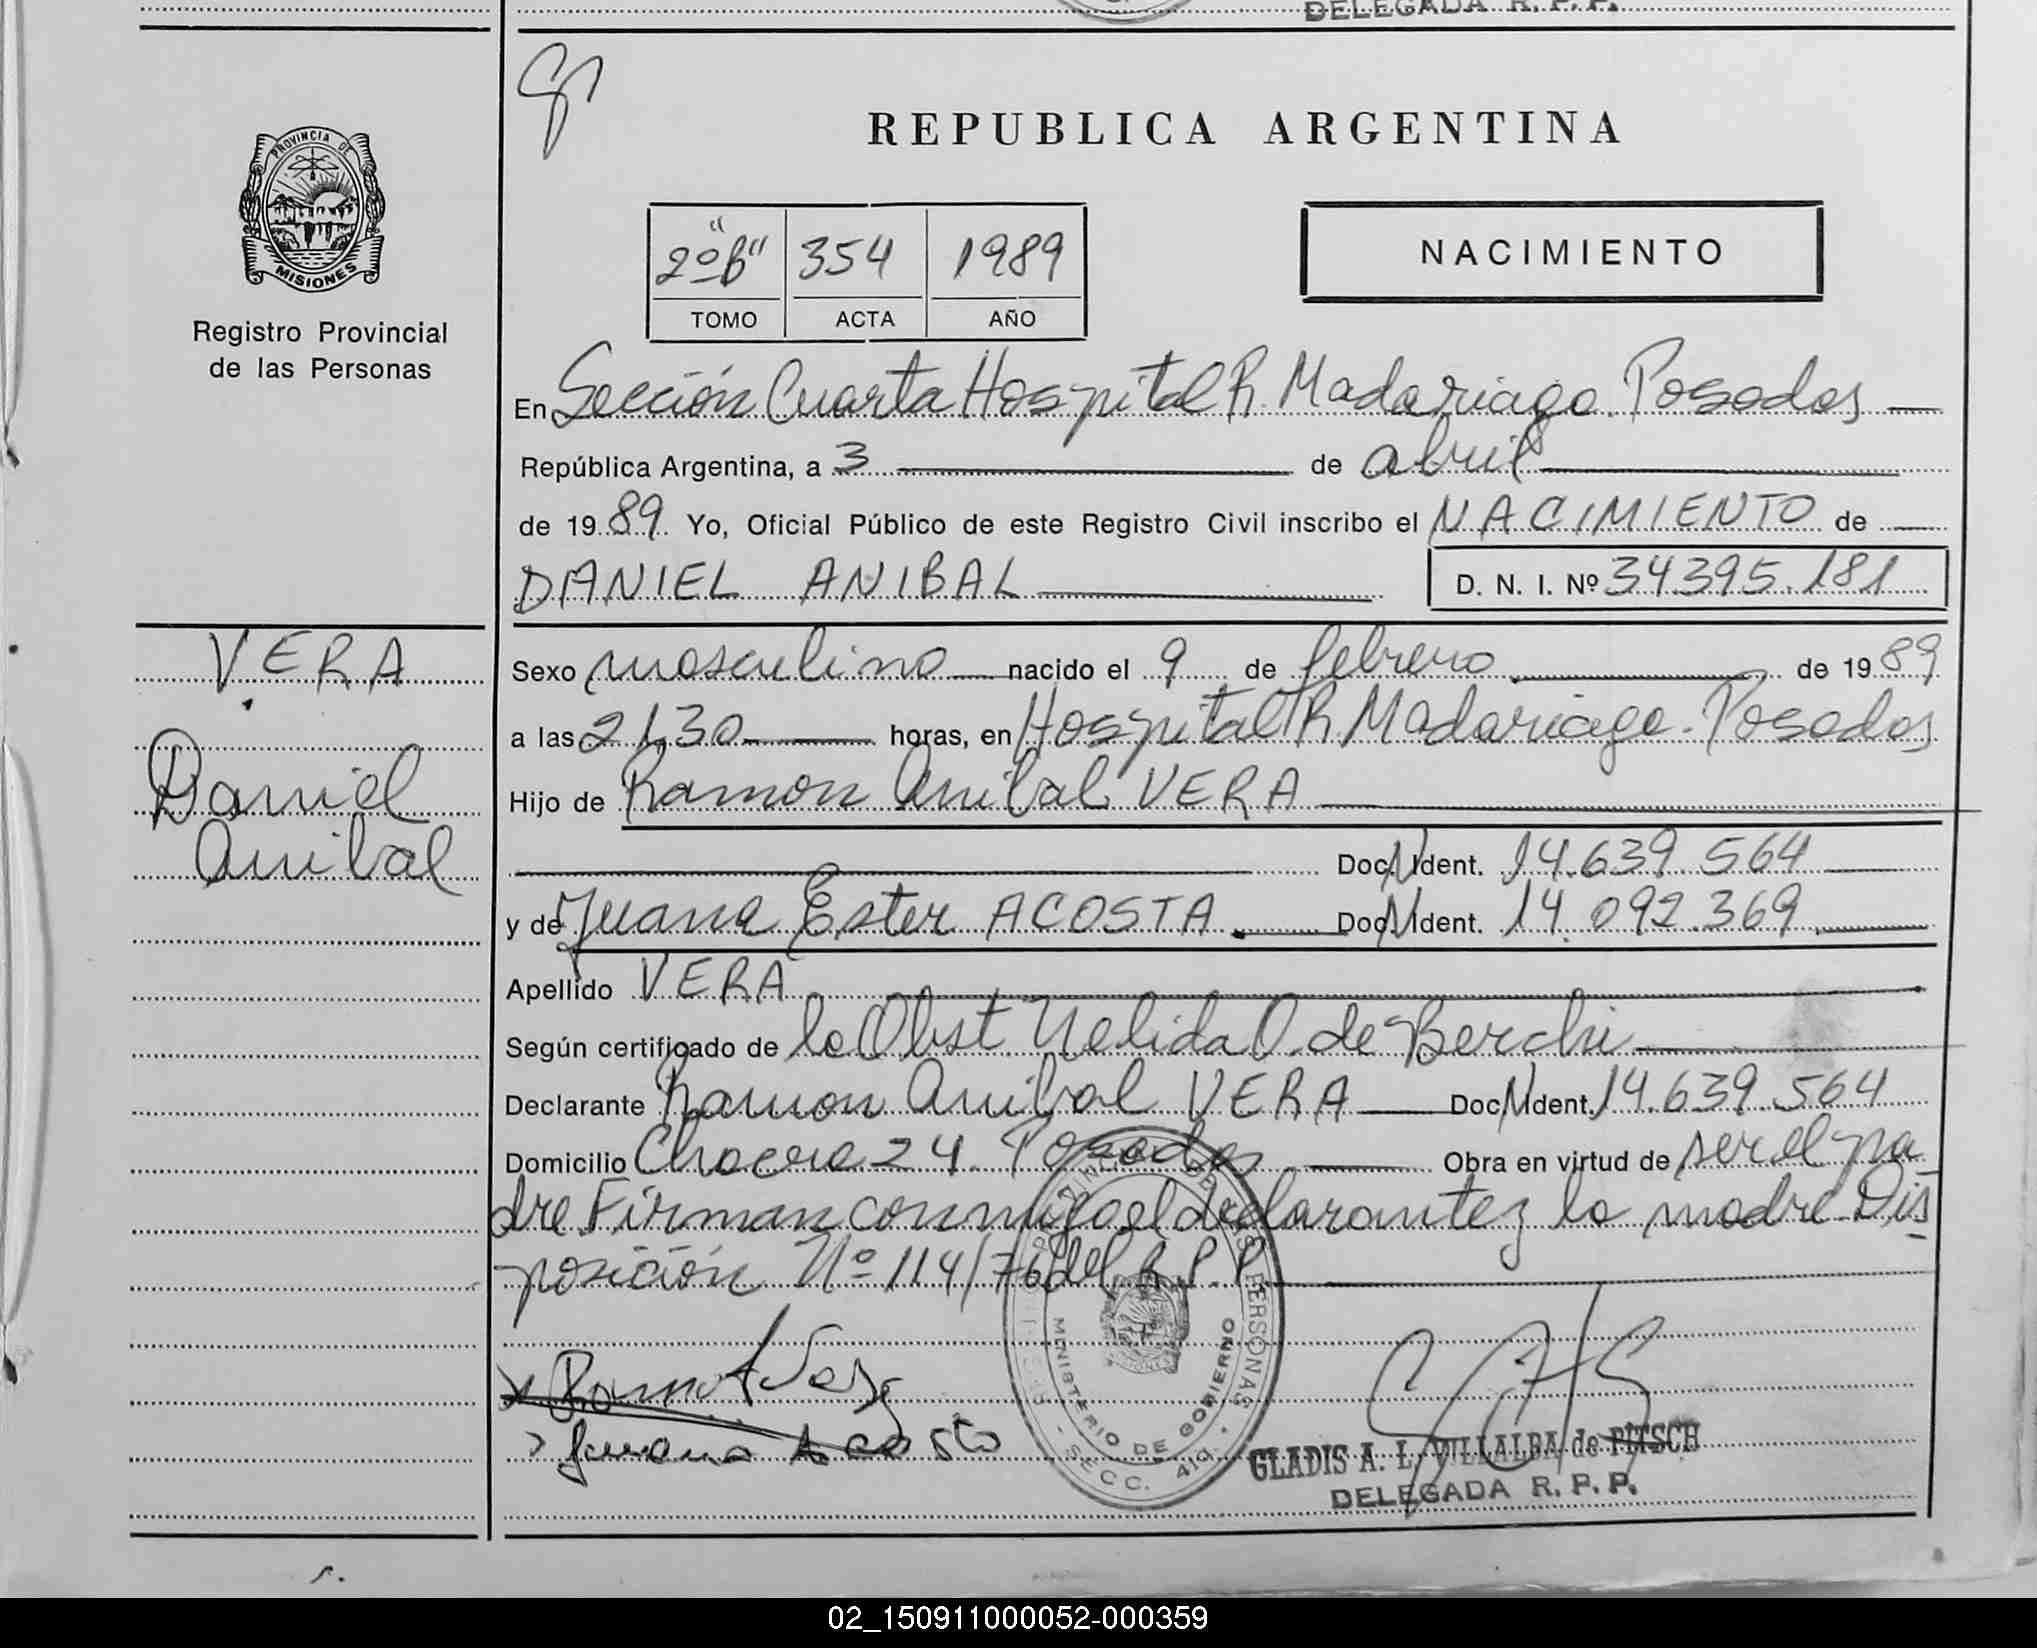 DELEGADA R. P. P.
REPUBLICA ARGENTINA
PROVINCIA DE
MISIONES
Registro Provincial
de las Personas
2º "B"
354
1989
TOMO
ACTA
AÑO
NACIMIENTO
En Sección Cuarta Hospital R. Madariaga. Posadas
República Argentina, a 3 de abril
de 1989. Yo, Oficial Público de este Registro Civil inscribo el NACIMIENTO de
DANIEL ANIBAL D. N. I. Nº 34.395.181
VERA
Daniel
Anibal
Sexo masculino nacido el 9 de febrero de 1989
a las 21,30 horas, en Hospital R. Madariaga. Posadas
Hijo de Ramon Anibal VERA
Doc. N Ident. 14.639.564
y de Juana Ester ACOSTA. Doc. N Ident. 14.092.369
Apellido VERA
Según certificado de la Obst Nelida O. de Berchi
Declarante Ramon Anibal VERA Doc. N Ident. 14.639.564
Domicilio Chacra 24. Posadas Obra en virtud de ser el pa
dre. Firman conmigo el declarante y la madre Dis
posición Nº 114/76 del R.P.P.
Juana Acosta
MINISTERIO DE GOBIERNO
SECC. 4ta.
GLADIS A. L. VILLALBA de PITSCH
DELEGADA R. P. P.
02_150911000052-000359